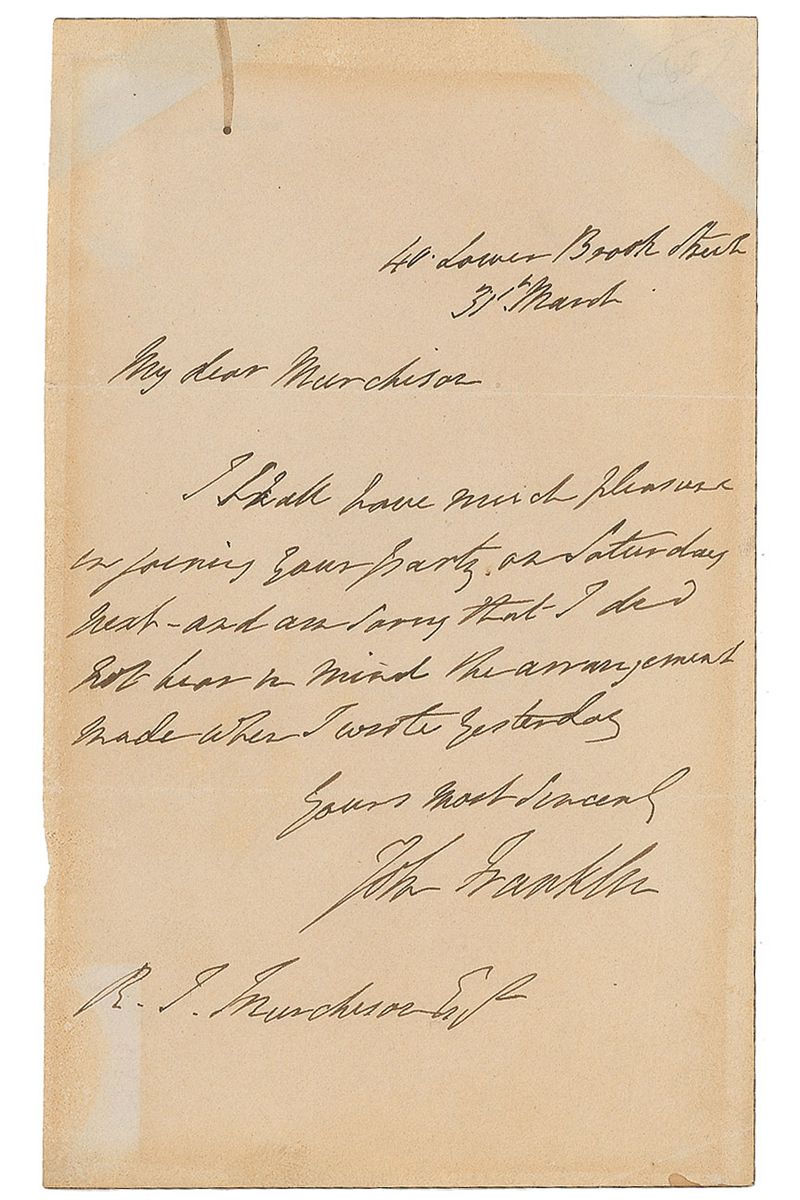 40 Lower Brook Street
31st March
My dear Murchison
I shall have much pleasure
in joining your party on Saturday
next - and am sorry that I did
not bear in mind the arrangement
made when I wrote yesterday
Yours most sincerely
John Franklin
R. I. Murchison Esqr